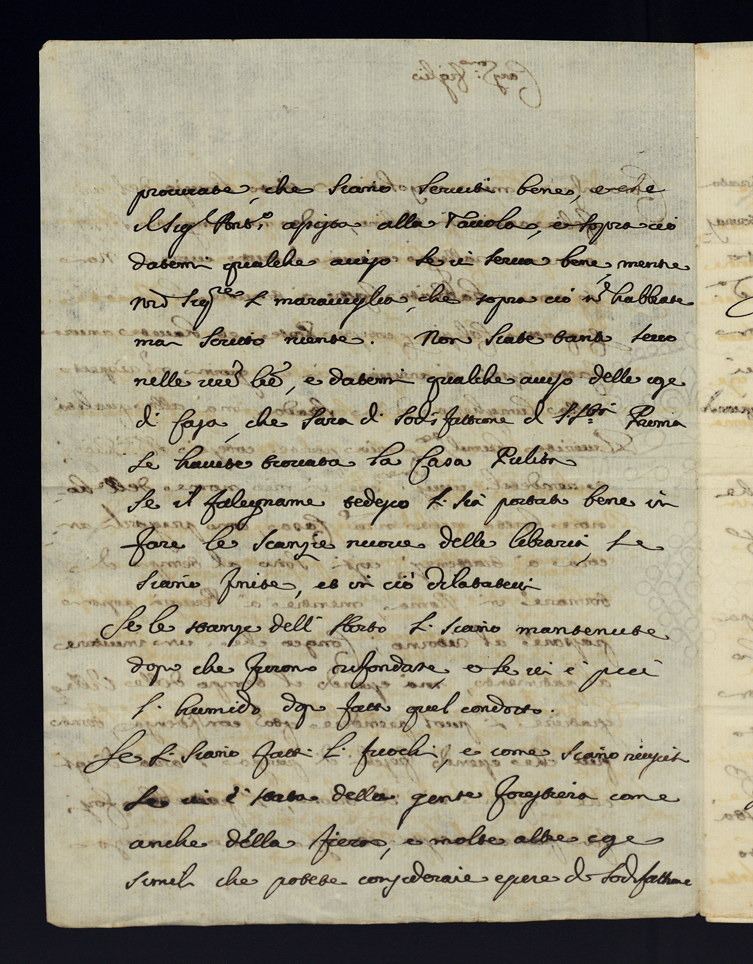 procurate, che siano seruiti bene, e che
il Sig.r Ant.o assista alla Tauola, e sopra ciò
datemi qualche auiso se ui serua bene, mentre
Sig.re si marauiglia, che sopra ciò nō habbiate
mai scritto niente. Non siate tanto secco
nelle ure lre, e datemi qualche auiso delle cose
di Casa, che sarà di sodisfattione di Prima
se hauete trouata la Casa Pulita
Se il falegname tedesco si sia portato bene in
fare le scanzie nuoue della libraria, se
siano finite, et in ciò dilatateui
Se le stanze dell' Horto si siano mantenute
dopo che furono rifondate, e se ui è più
l' humido dopo fatto quel condotto.
Se si siano fatti li fuochi, e come siano riusciti
Se ui è stata della gente forestiera come
anche della fiera, e molte altre cose
simili che potete considerare essere di sodisfattione